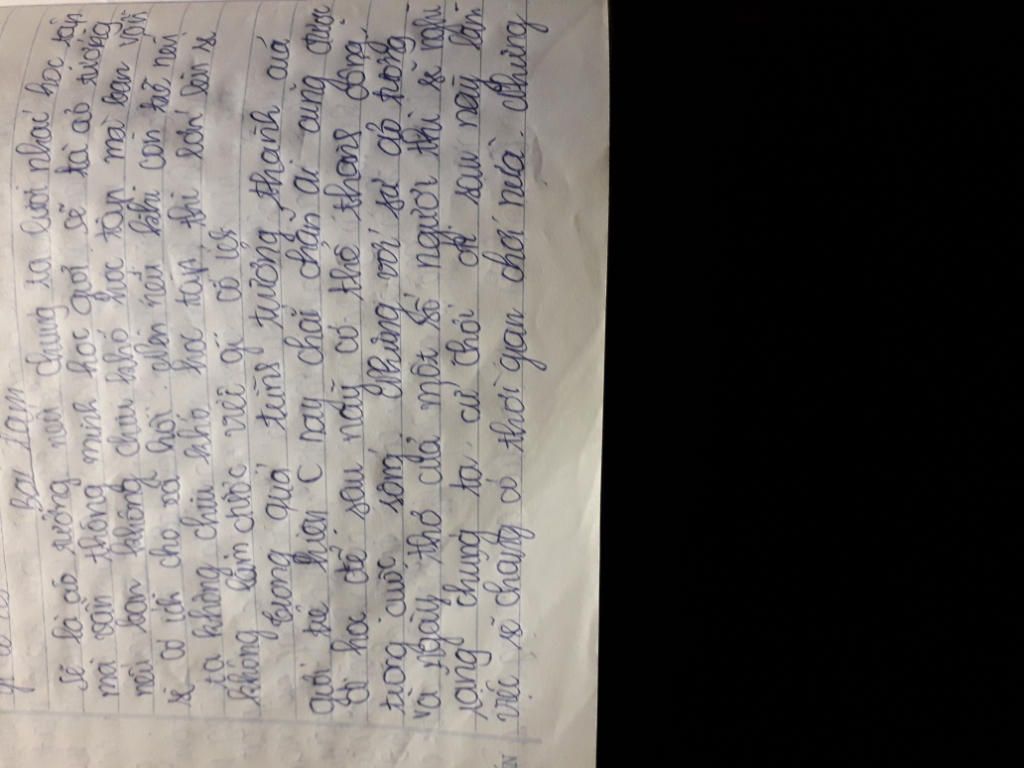 Bài làm
sẽ là ảo tưởng nếu chúng ta lười nhác học tập
mà vẫn thông minh học giỏi sẽ là ảo tưởng
nếu bạn không chịu khó học tập mà bạn vẫn
sẽ có ích cho xã hội. nên nếu khi còn trẻ mà
ta không chịu khó học tập, thì sau lớn sẽ
không làm được việc gì có ích
trong quá từng trưởng thành quá
giới trẻ hiện nay chơi chẳn ai cũng phải
đi học để sau nãy có thể thang đông
trong cuộc sống. Nhưng với sự áo tưởng
và ngây thơ của một số người thì nghĩ
rằng chúng ta cứ chơi đi sau nãy lớn
việc sẽ chẳng có thời gan chơi nữa. Nhưng